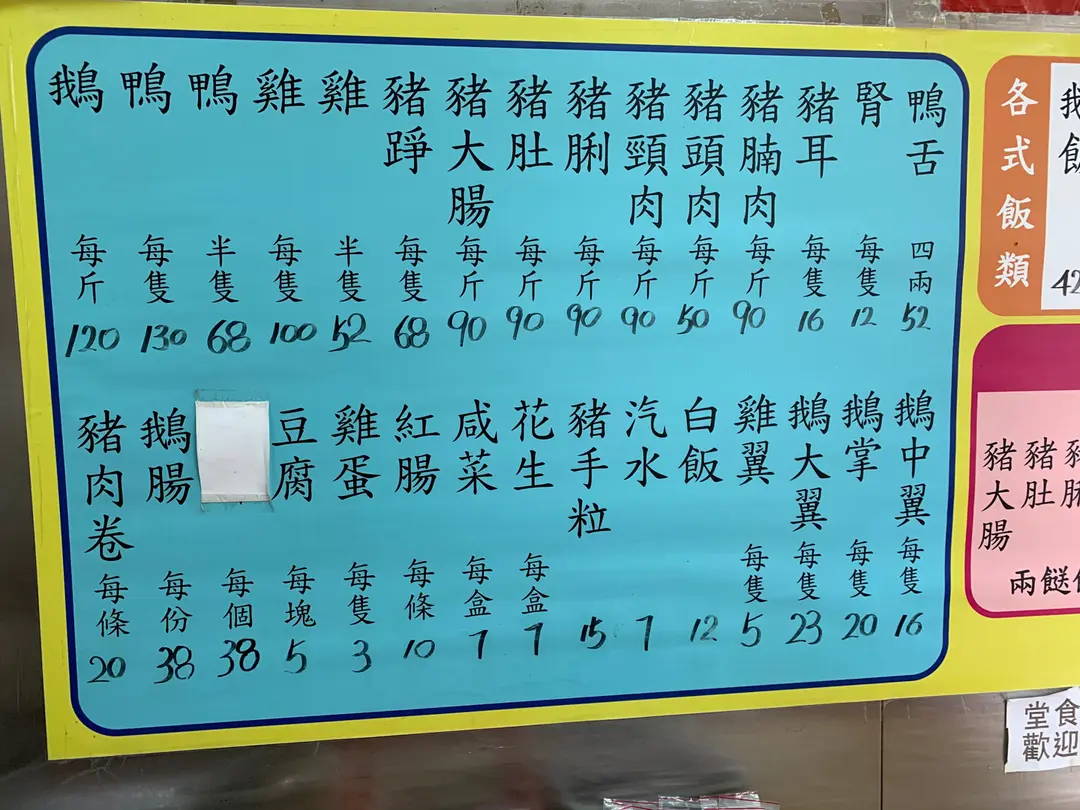 鵝 每斤 120
鴨 每隻 130
鴨 半隻 68
雞 每隻 100
雞 半隻 52
豬踭 每隻 68
豬大腸 每斤 90
豬肚 每斤 90
豬脷 每斤 90
豬頸肉 每斤 90
豬頭肉 每斤 50
豬腩肉 每斤 90
豬耳 每隻 16
腎 每隻 12
鴨舌 四兩 52
豬肉卷 每條 20
鵝腸 每份 38
每個 38
豆腐 每塊 5
雞蛋 每隻 3
紅腸 每條 10
咸菜 每盒 7
花生 每盒 7
豬手粒 15
汽水 7
白飯 12
雞翼 每隻 5
鵝大翼 每隻 23
鵝掌 每隻 20
鵝中翼 每隻 16
各式飯類
豬大腸
豬肚
兩餸
堂食
歡迎